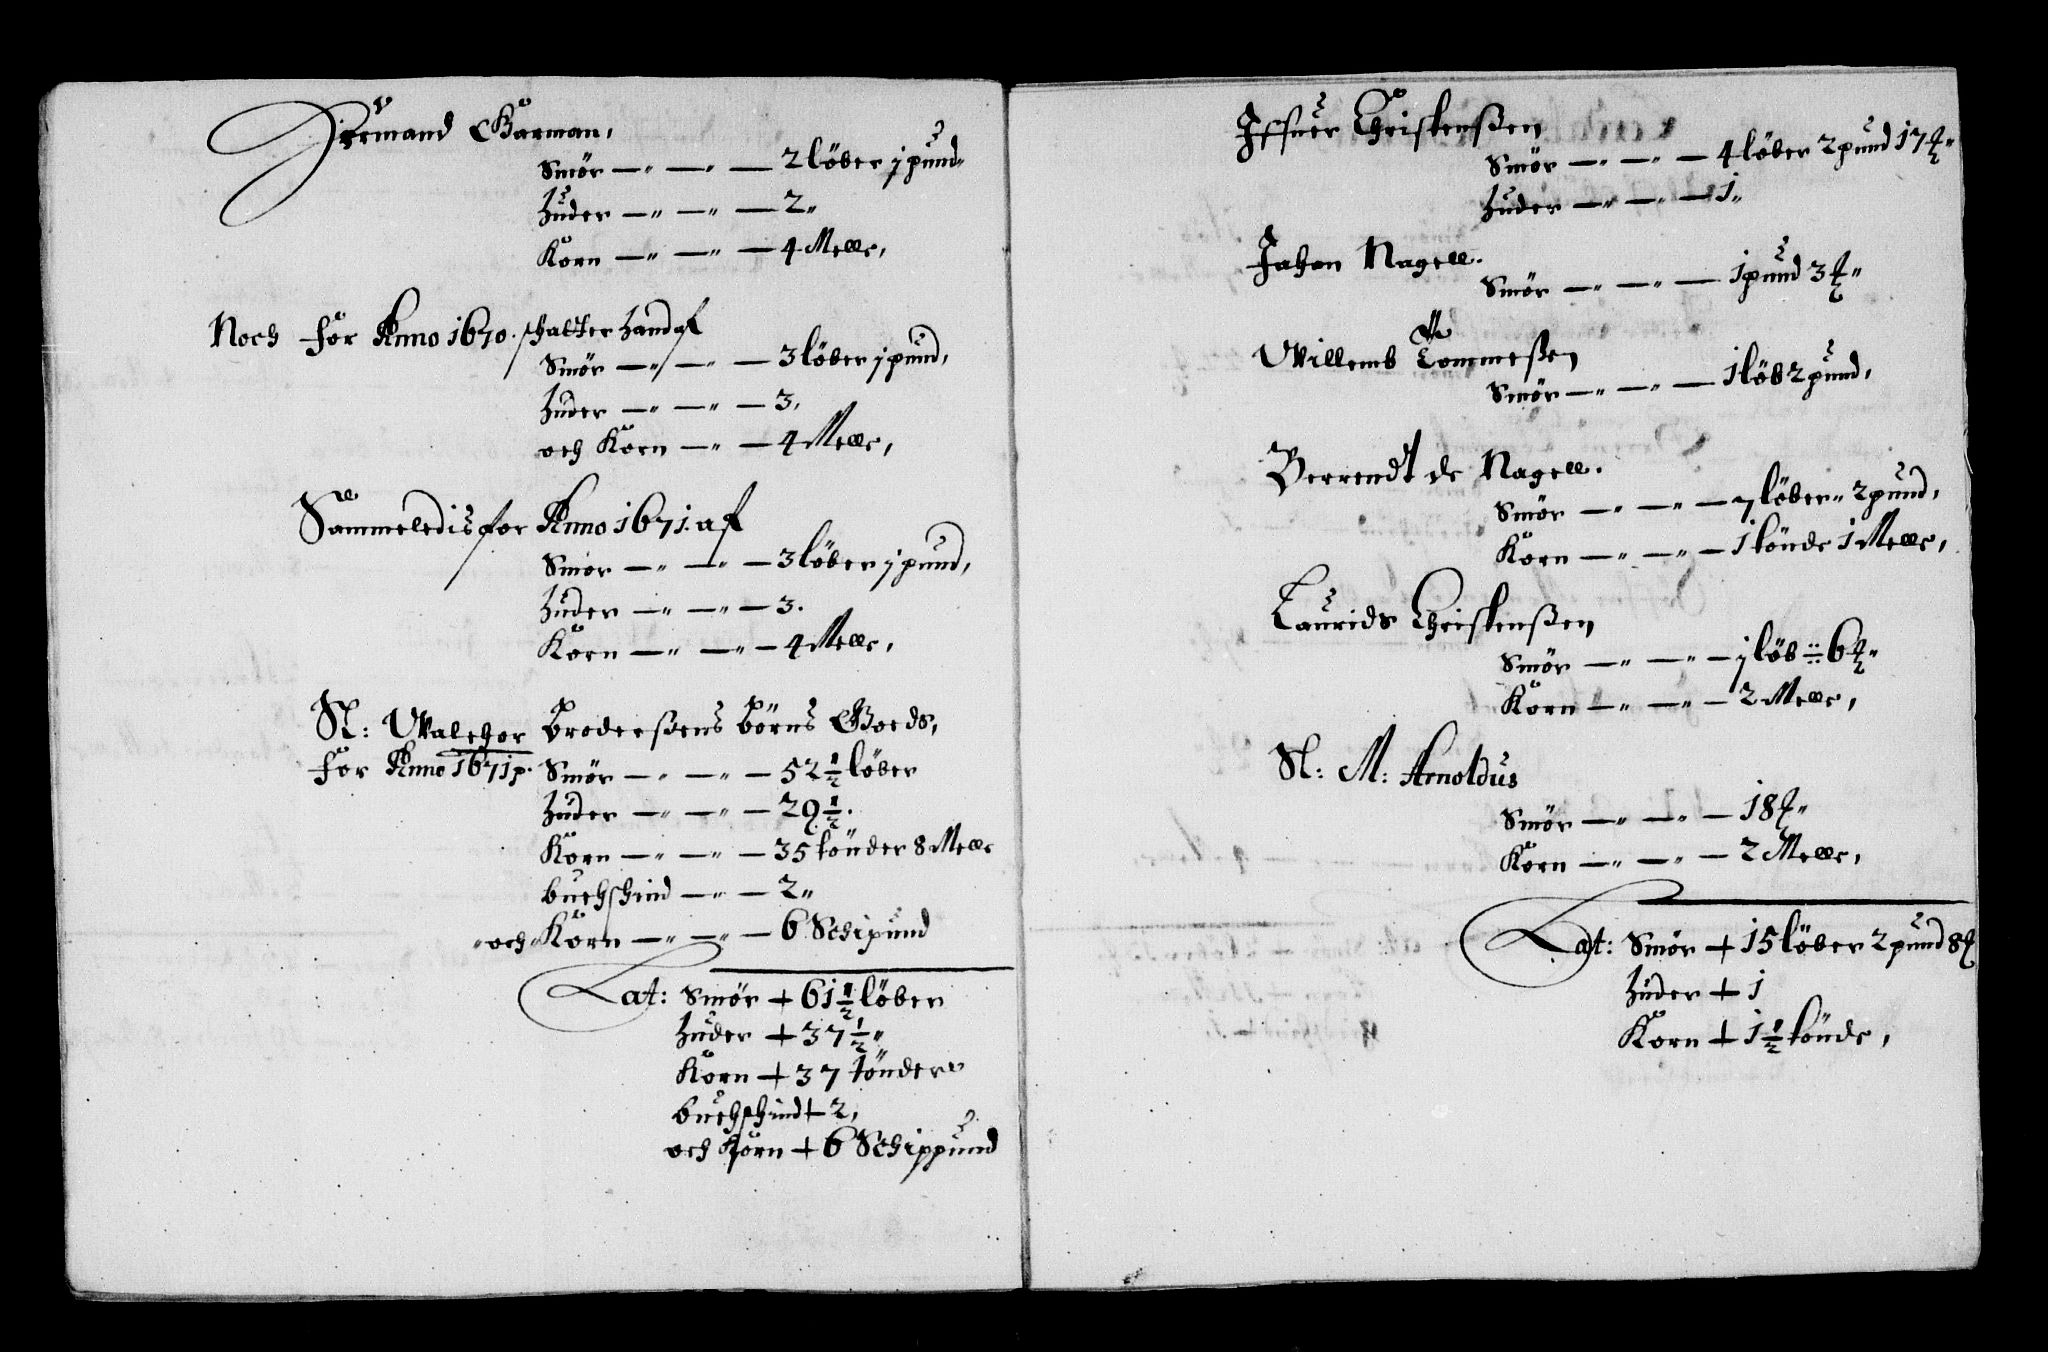 Hermand Garman,
Smör — " — " — 2 löber 1 pund "
Huder — " — " — 2 "
Korn — " — " — 4 Meller,
Noch för Anno 1670. schatter hand af
Smör — " — " — 3 löber 1 pund,
Huder — " — " — 3,
och Korn — " — 4 Meller,
Sammeledis for Anno 1671. af
Smör — " — " — 3 löber 1 pund,
Huder — " — " — 3.
Korn — " — " — 4 Meller,
Sl: Walchor Brodersens börns Goeds,
for Anno 1671 p.
Smör — " — " — 52 1/2 löber
Huder — " — " — 29 1/2.
Korn — " — " — 35 tönder 8 Meller
buchschind — " — 2 "
" och " Korn — " — " — 6 Schipund
Lat: Smör + 61 1/2 löber
Huder + 37 1/2 "
Korn + 37 tönder
buchschind + 2,
och Korn + 6 Schippund
Iffuer Christensen
Smör — " — " — 4 löber 2 pund 17 ℔ "
Huder — " — " — 1 "
Johan Nagell.
Smör — " — " — 1 pund 3 ℔ "
Willemb Tommesen
Smör — " — " — 1 löb 2 pund,
Berrendt de Nagell.
Smör — " — " — 7 löber " 2 pund,
Korn — " — " — 1 tönde 1 Meller,
Laurids Christensen
Smör — " — " — 1 löb 6 ℔ "
Korn — " — " — 2 Meller,
Sl: M: Arnoldus
Smör — " — " — 18 ℔ "
Korn — " — " — 2 Meller,
Lat: Smör + 15 löber 2 pund 8 ℔
Huder + 1
Korn + 1 1/2 tönde,